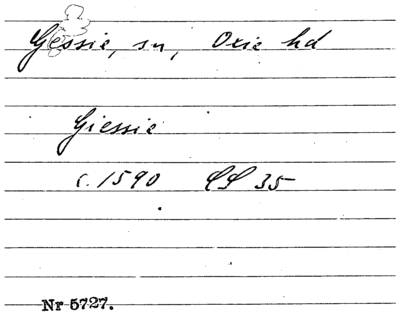 Gessie, sn, Oxie hd
Giessie
c. 1590 LL 35
Nr 5727.